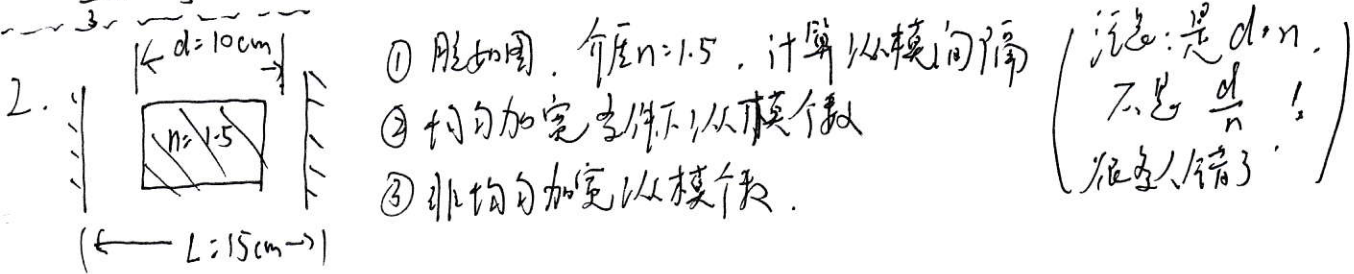 3.
d=10cm
2.
n=1.5
L=15cm
① 腔如图. 介质n=1.5, 计算纵模间隔
② 均匀加宽条件下纵模个数
③ 非均匀加宽纵模个数.
注意:是d·n,
不是 d/n !
很多人错了